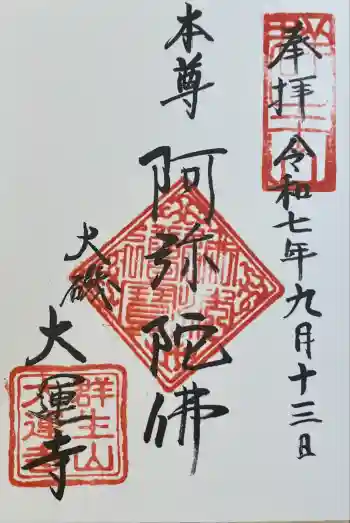 奉拝 令和七年九月十三日
本尊
阿弥陀佛
大磯
大運寺
群生山
大運寺